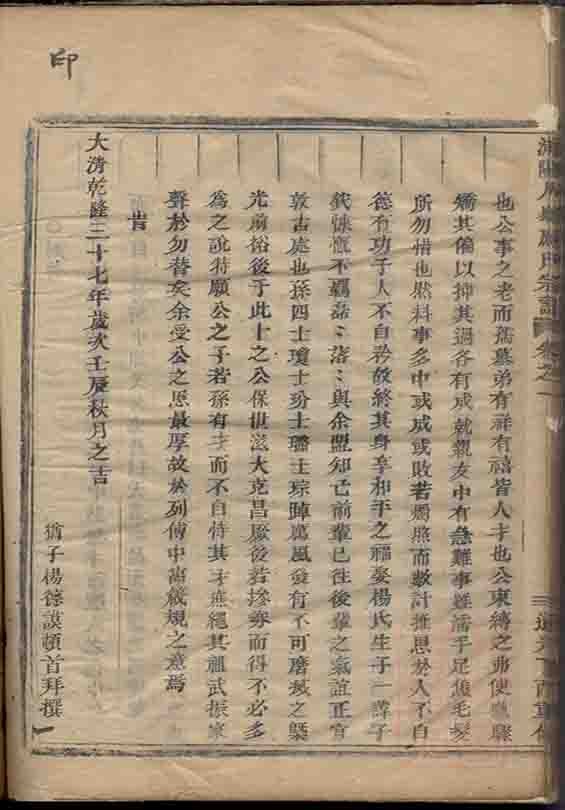 印
也公事之老而孺慕弟有祥有禧皆人才也公束縛之弗使
矯其偏以抑其過各有成就親友中有急難事雖濡手足焦毛髮
所勿惜也然料事多中或成或敗若燭照而數計推恩於人不自
德有功于人不自矜故終其身享和平之福娶楊氏生子一諱子
慷慨不羈磊〻落〻與余盟知已前輩已往後輩之氣誼正宜
敦古處也孫四士瓊士玢士璠士琮踔厲風發有不可磨滅之槩
光前裕後于此卜之公保世滋大克昌厥後若操券而得不必多
為之說特願公之子若孫有才而不自恃其才燕繩其祖武振家
聲於勿替矣余受公之恩最厚故於列傳中寓箴規之意焉
旹
大清乾隆三十七年歲次壬辰秋月之吉
猶子楊德謨頓首拜撰
氏宗譜 卷之一